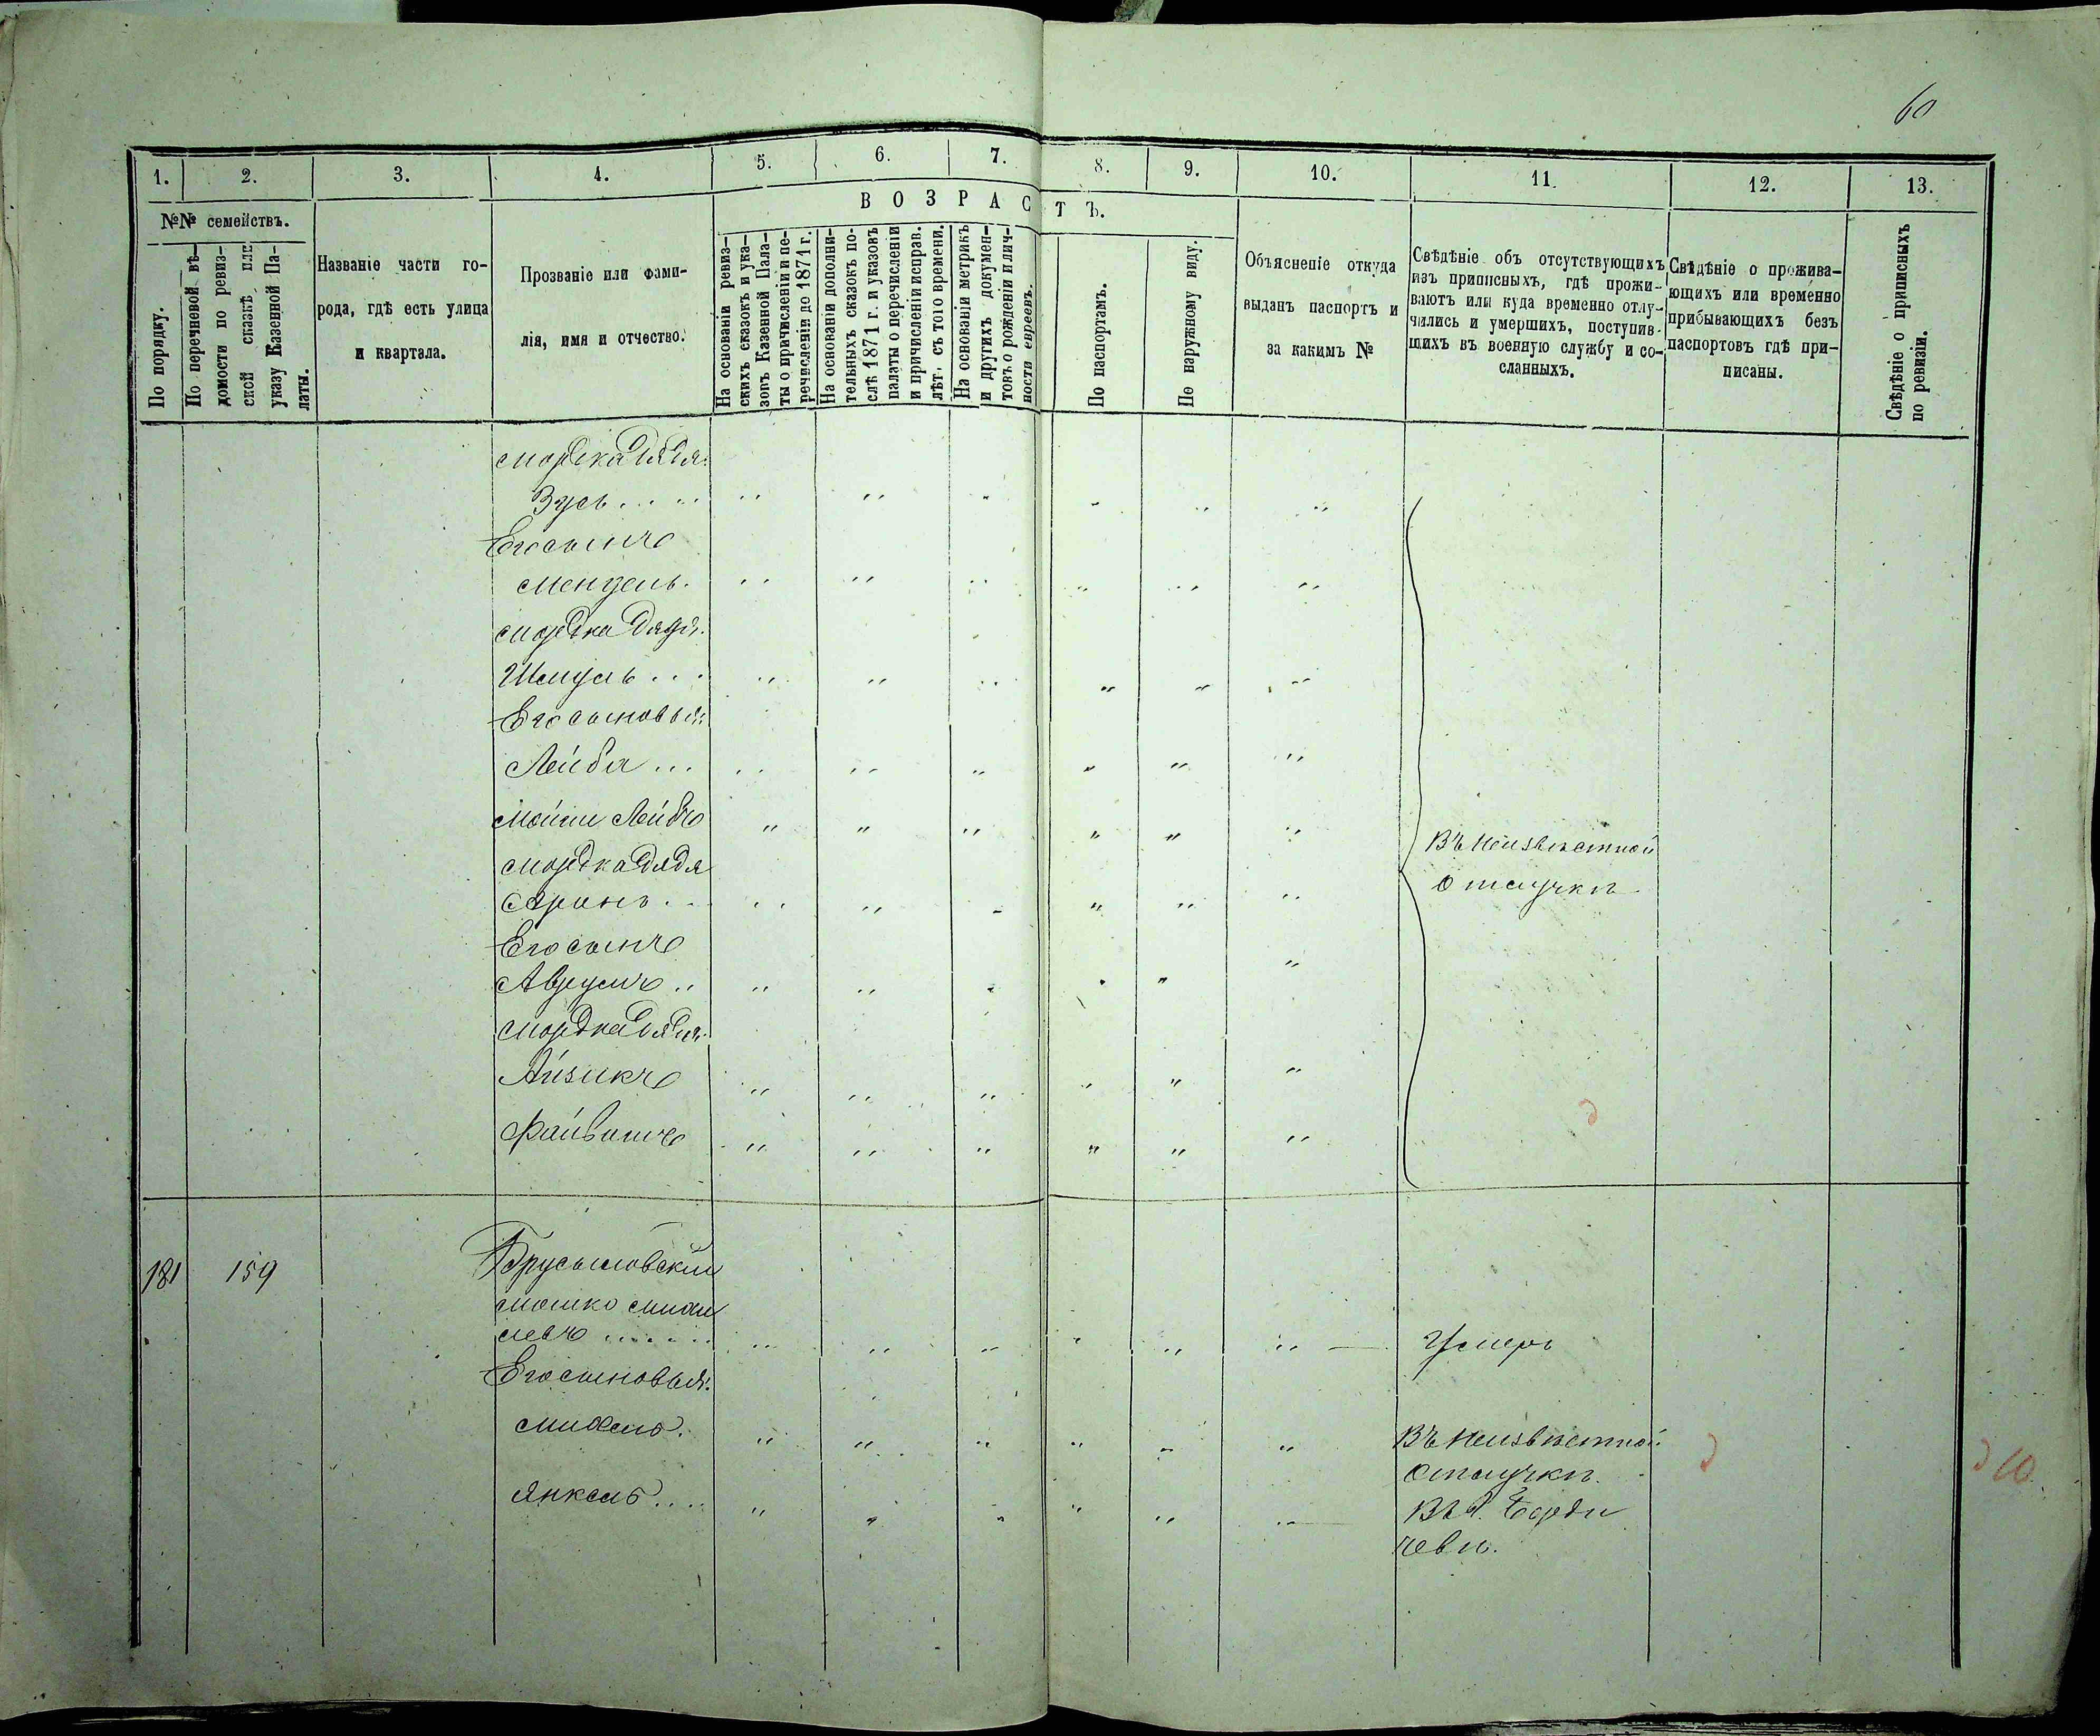 60
1. 2. 3. 4. 5. 6. 7. 8. 9. 10. 11. 12. 13.
№№ семействъ.
В О З Р А С Т Ъ.
По порядку.
По перечневой вѣ-
домости по ревиз-
ской сказкѣ или
указу Казенной Па-
латы.
Названіе части го-
рода, гдѣ есть улица
и квартала.
Прозваніе или фами-
лія, имя и отчество.
На основаніи ревиз-
скихъ сказокъ и ука-
зовъ Казенной Пала-
ты о причисленіи и пе-
речисленіи до 1871 г.
На основаніи дополни-
тельныхъ сказокъ по-
слѣ 1871 г. и указовъ
палаты о перечисленіи
и причисленіи исправ.
лѣт. съ того времени.
На основаніи метрикъ
и другихъ докумен-
товъ о рожденіи и лич-
ности евреевъ.
По паспортамъ.
По наружному виду.
Объясненіе откуда
выданъ паспортъ и
за какимъ №
Свѣдѣніе объ отсутствующихъ
изъ приписныхъ, гдѣ прожи-
ваютъ или куда временно отлу-
чились и умершихъ, поступив-
шихъ въ военную службу и со-
сланныхъ.
Свѣдѣніе о прожива-
ющихъ или временно
прибывающихъ безъ
паспортовъ гдѣ при-
писаны.
Свѣдѣніе о приписныхъ
по ревизіи.
Мордка дядя
Зусь . . . . "
Его сынъ
Мендель.
Мордка дядя.
Шмуль . . .
Его сыновья:
Лейба . . .
Мойши Лейбъ
Мордка дядя
Аронъ . .
Его сынъ
Аврумъ . .
Мордка дядя.
Айзикъ
Файвишъ
Въ неизвѣстной
отлучкѣ
181 159 Брусиловскій
Мошко Михе
левъ . . . . . . Умеръ
Его сыновья:
Михель. Въ неизвѣстной
отлучкѣ.
Янкель . . . . Въ г. Берди
чевѣ.